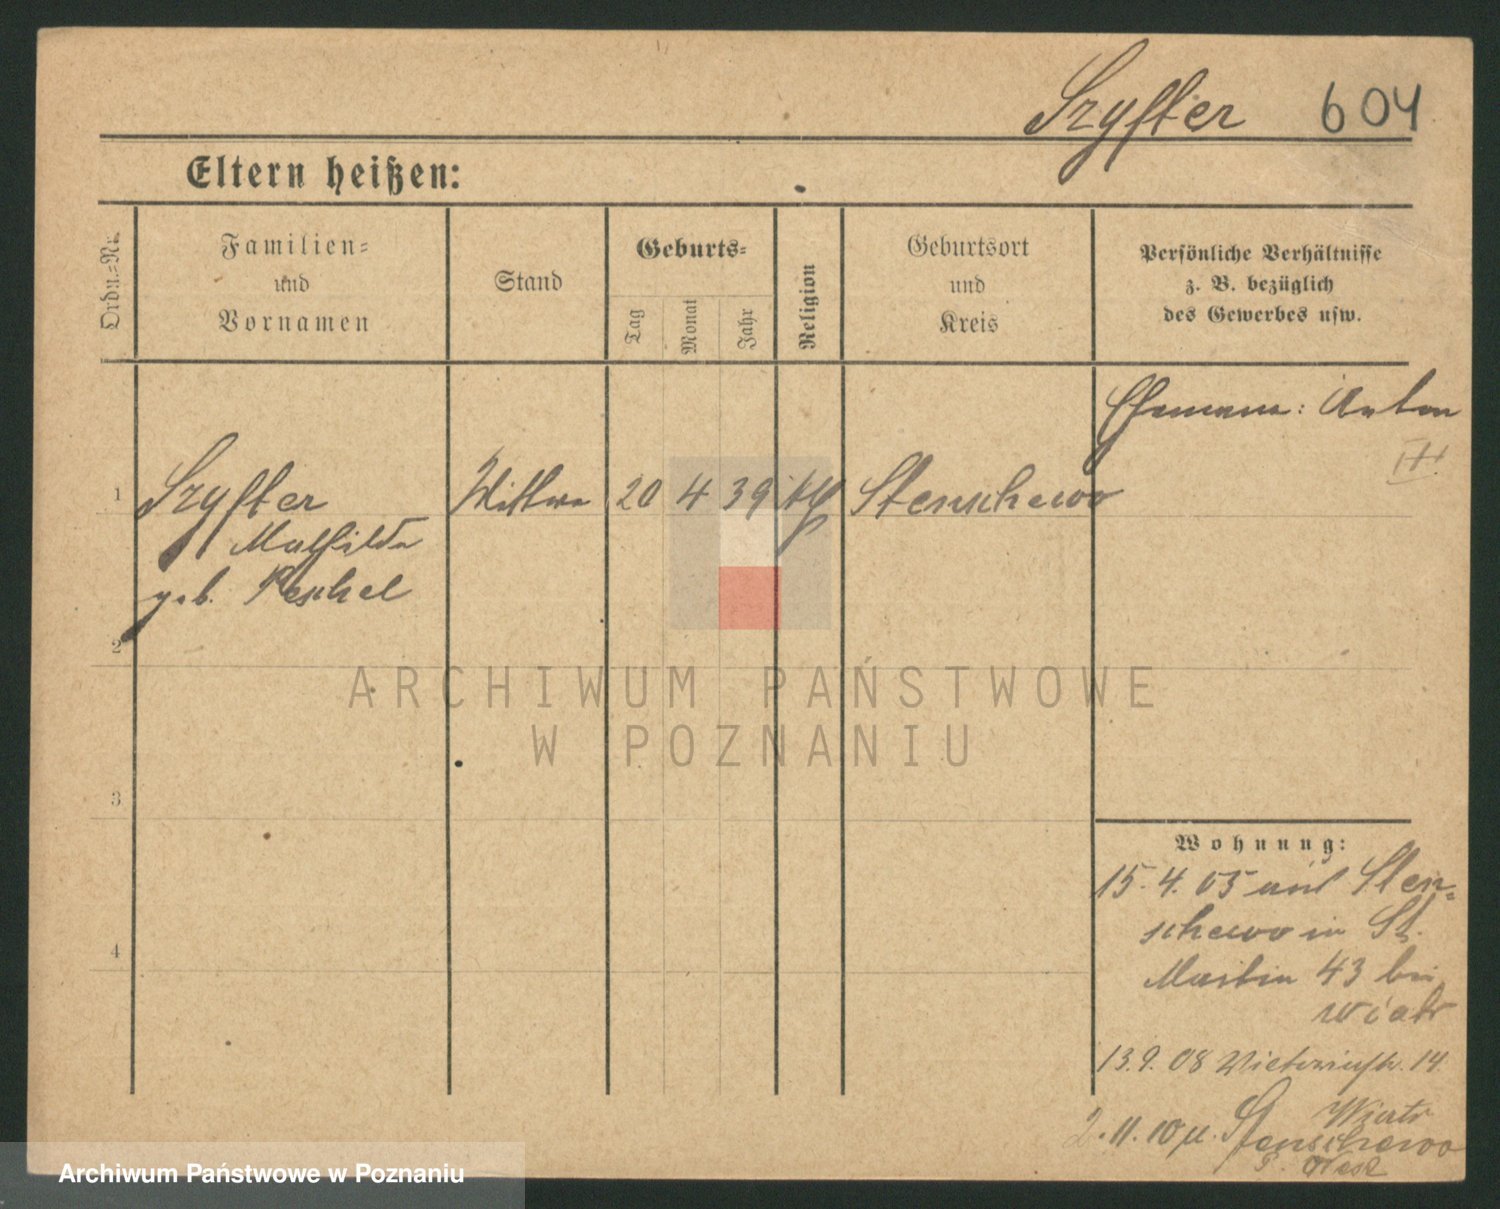 Szyfter 604
Eltern heißen:
Ordn.=Nr.
Familien=
und
Vornamen
Stand
Geburts=
Tag
Monat
Jahr
Religion
Geburtsort
und
Kreis
Persönliche Verhältnisse
z. B. bezüglich
des Gewerbes usw.
Ehemann: Anton
1 Szyfter Wittwe 20 4 39 kth Stenschewo
Mathilde
geb. Peschel
2
3
4
ARCHIWUM PAŃSTWOWE
W POZNANIU
Wohnung:
15. 4. 05 aus Sten=
schewo in St.
Martin 43 bei
Wiatr
13. 9. 08 Victoriastr. 14
Wiatr
2. 11. 10 n. Stenschewo
Archiwum Państwowe w Poznaniu